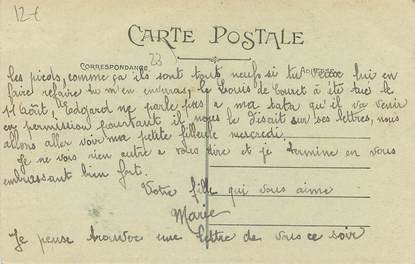 12-€
CARTE POSTALE
CORRESPONDANCE
33
les pieds, comme ça ils sont tout neufs si tu lui en
faire refaire tu m'en enverras, le Louis de Couret a été tué le
11 Août, Edgard ne parle pas a ma tata qu'il va venir
en permission pourtant il nous le disait sur ses lettres, nous
allons aller voir ma petite filleule mercredi.
Je ne vois rien autre a vous dire et je termine en vous
embrassant bien fort.
Votre fille qui vous aime
Marie
Je pense trouver une lettre de vous ce soir